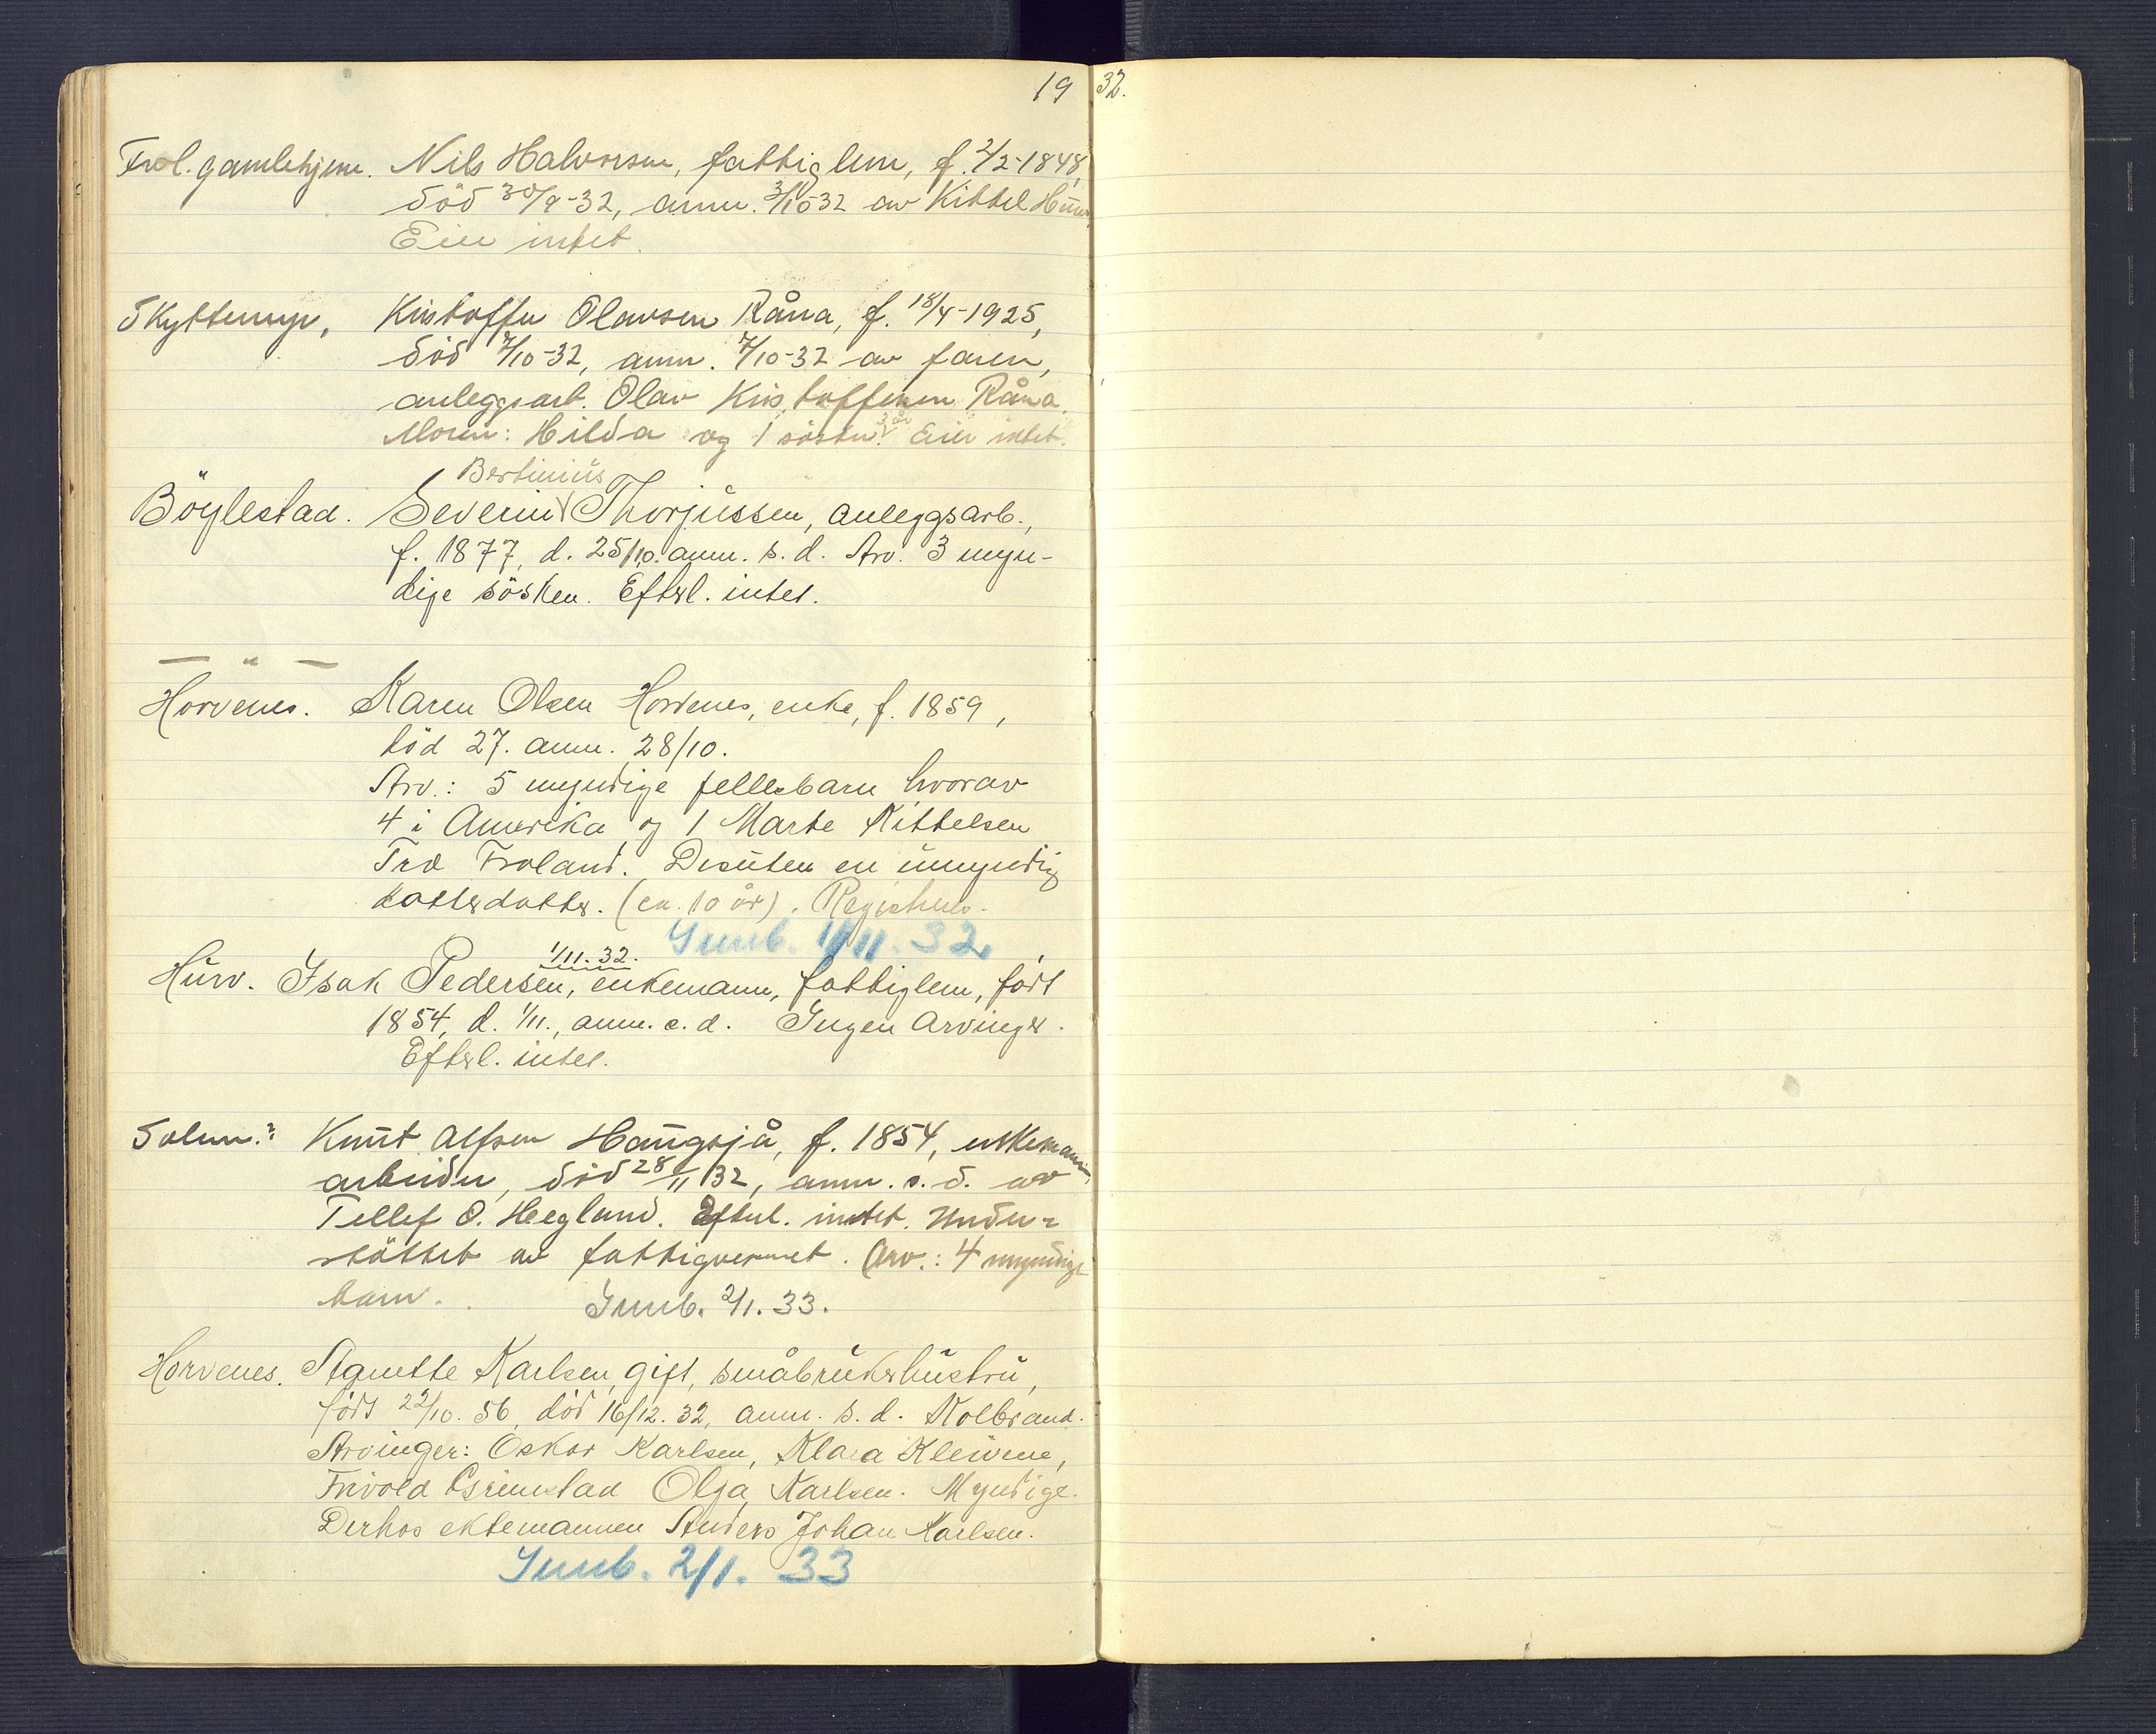 1932.
Frol. gamlehjem. Nils Halvorsen, fattiglem, f. 2/2-1848,
död 30/9-32, anm. 3/10-32 av Kittel Hurv.
Eier intet.
Skyttemyr, Kristoffer Olavsen Råna, f. 18/4-1925,
död 7/10-32, anm. 7/10-32 av faren,
anleggsarb. Olav Kristoffersen Råna.
Moren: Hilda og 1 söster 3 år. Eier intet.
Bertinius
Böylestad. Severin Thorjussen, anleggsarb.,
f. 1877, d. 25/10. anm. s. d. Arv. 3 myn-
dige sösken. Efterl. intet.
— " —
Horvenes. Karen Olsen Horvenes, enke, f. 1859,
död 27. anm. 28/10.
Arv.: 5 myndige fellesbarn hvorav
4 i Amerika og 1 Marte Kittelsen
Træ Froland. Desuten en umyndig
datterdatter. (ca. 10 år). Registreres.
Innb. 1/11. 32.
1/11. 32.
Hurv. Isak Pedersen, enkemann, fattiglem, född
1854, d. 1/11., anm. s. d. Ingen arvinger.
Efterl. intet.
Knut Alfsen Haugsjå, f. 1854, enkemann,
arbeider, död 28/11 32, anm. s. d. av
Tellef O. Hegland. Efterl. intet. Under-
stöttet av fattigvesenet. Arv.: 4 myndige
barn. Innb. 2/1. 33.
Horvenes. Agnette Karlsen, gift, småbrukerhustru,
född 22/10. 56, död 16/12. 32, anm. s. d. Kolbrand.
Arvinger: Oskar Karlsen, Klara Kleivene,
Frivold Grimstad Olga Karlsen. Myndige.
Derhos ektemannen Anders Johan Karlsen.
Innb. 2/1. 33